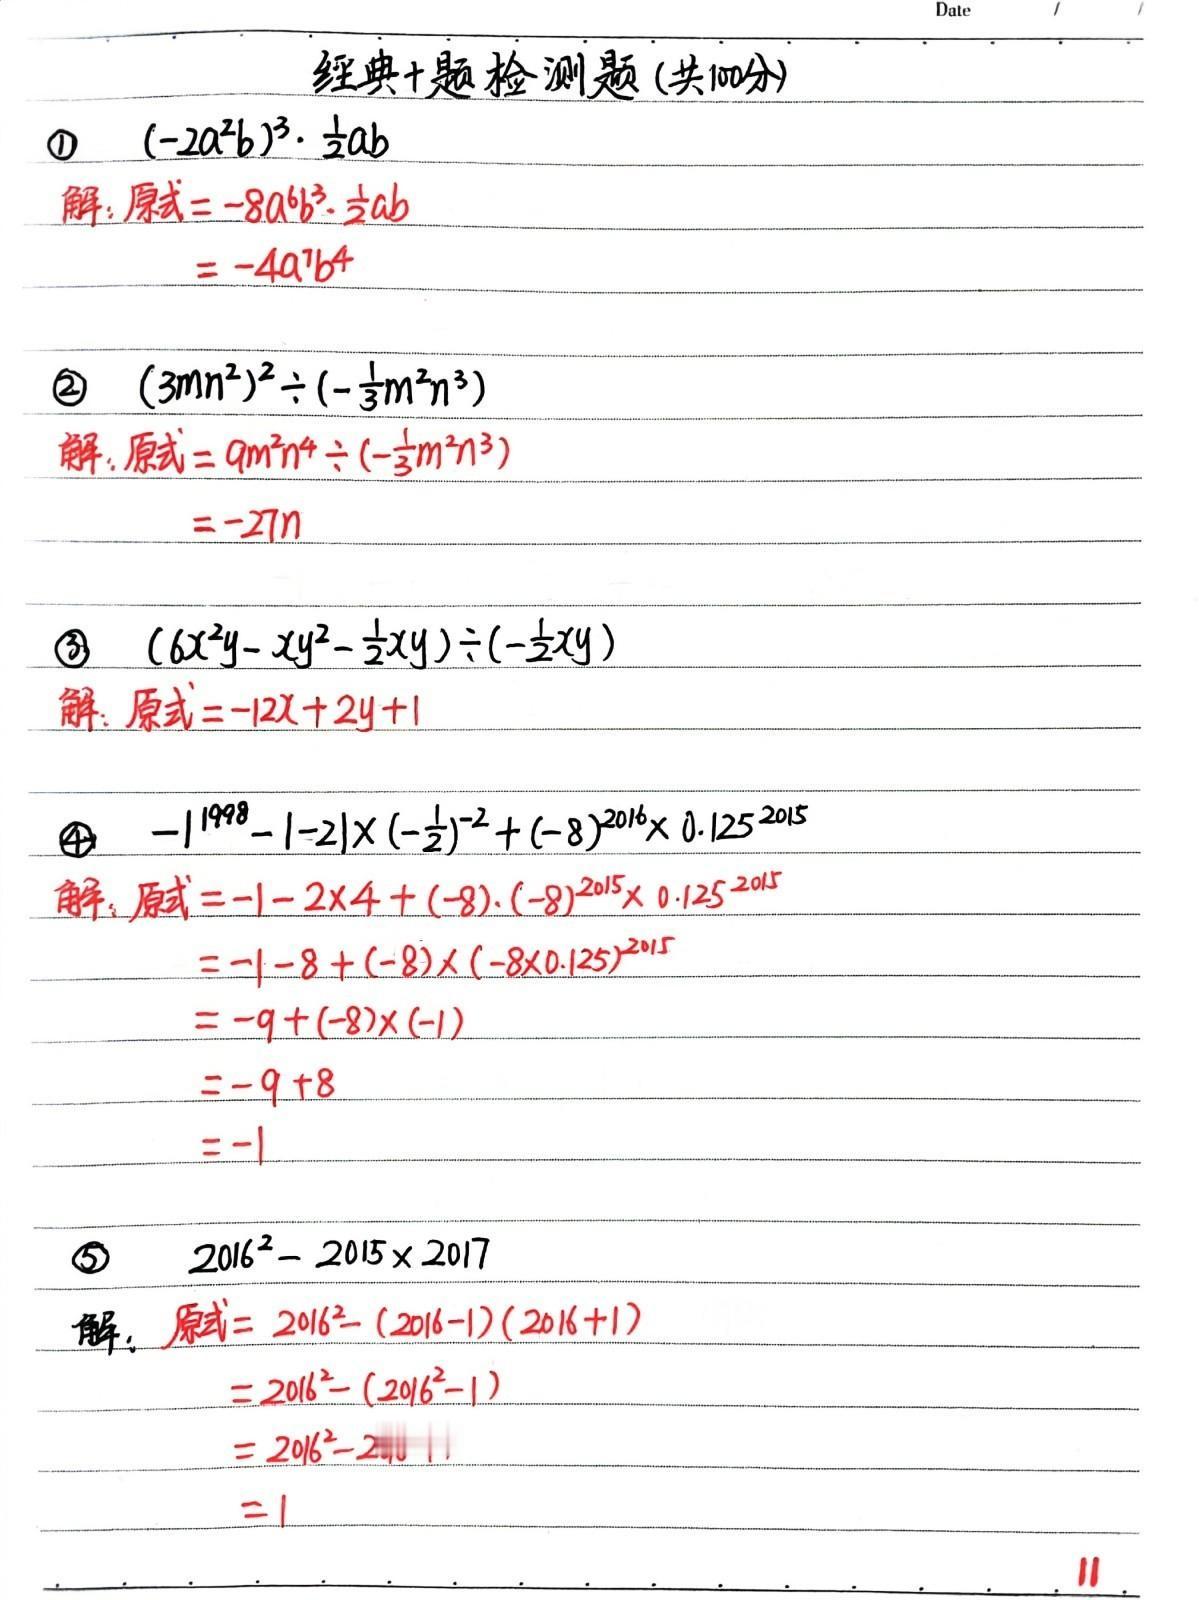 Date / /
经典十题检测题(共100分)
① (-2a²b)³·½ab
解:原式=-8a⁶b³·½ab
=-4a⁷b⁴
② (3mn²)²÷(-⅓m²n³)
解:原式=9m²n⁴÷(-⅓m²n³)
=-27n
③ (6x²y-xy²-½xy)÷(-½xy)
解:原式=-12x+2y+1
④ -1¹⁹⁹⁸-|-2|×(-½)⁻²+(-8)²⁰¹⁶×0.125²⁰¹⁵
解:原式=-1-2×4+(-8)·(-8)²⁰¹⁵×0.125²⁰¹⁵
=-1-8+(-8)×(-8×0.125)²⁰¹⁵
=-9+(-8)×(-1)
=-9+8
=-1
⑤ 2016²-2015×2017
解:原式=2016²-(2016-1)(2016+1)
=2016²-(2016²-1)
=2016²-2
=1
11